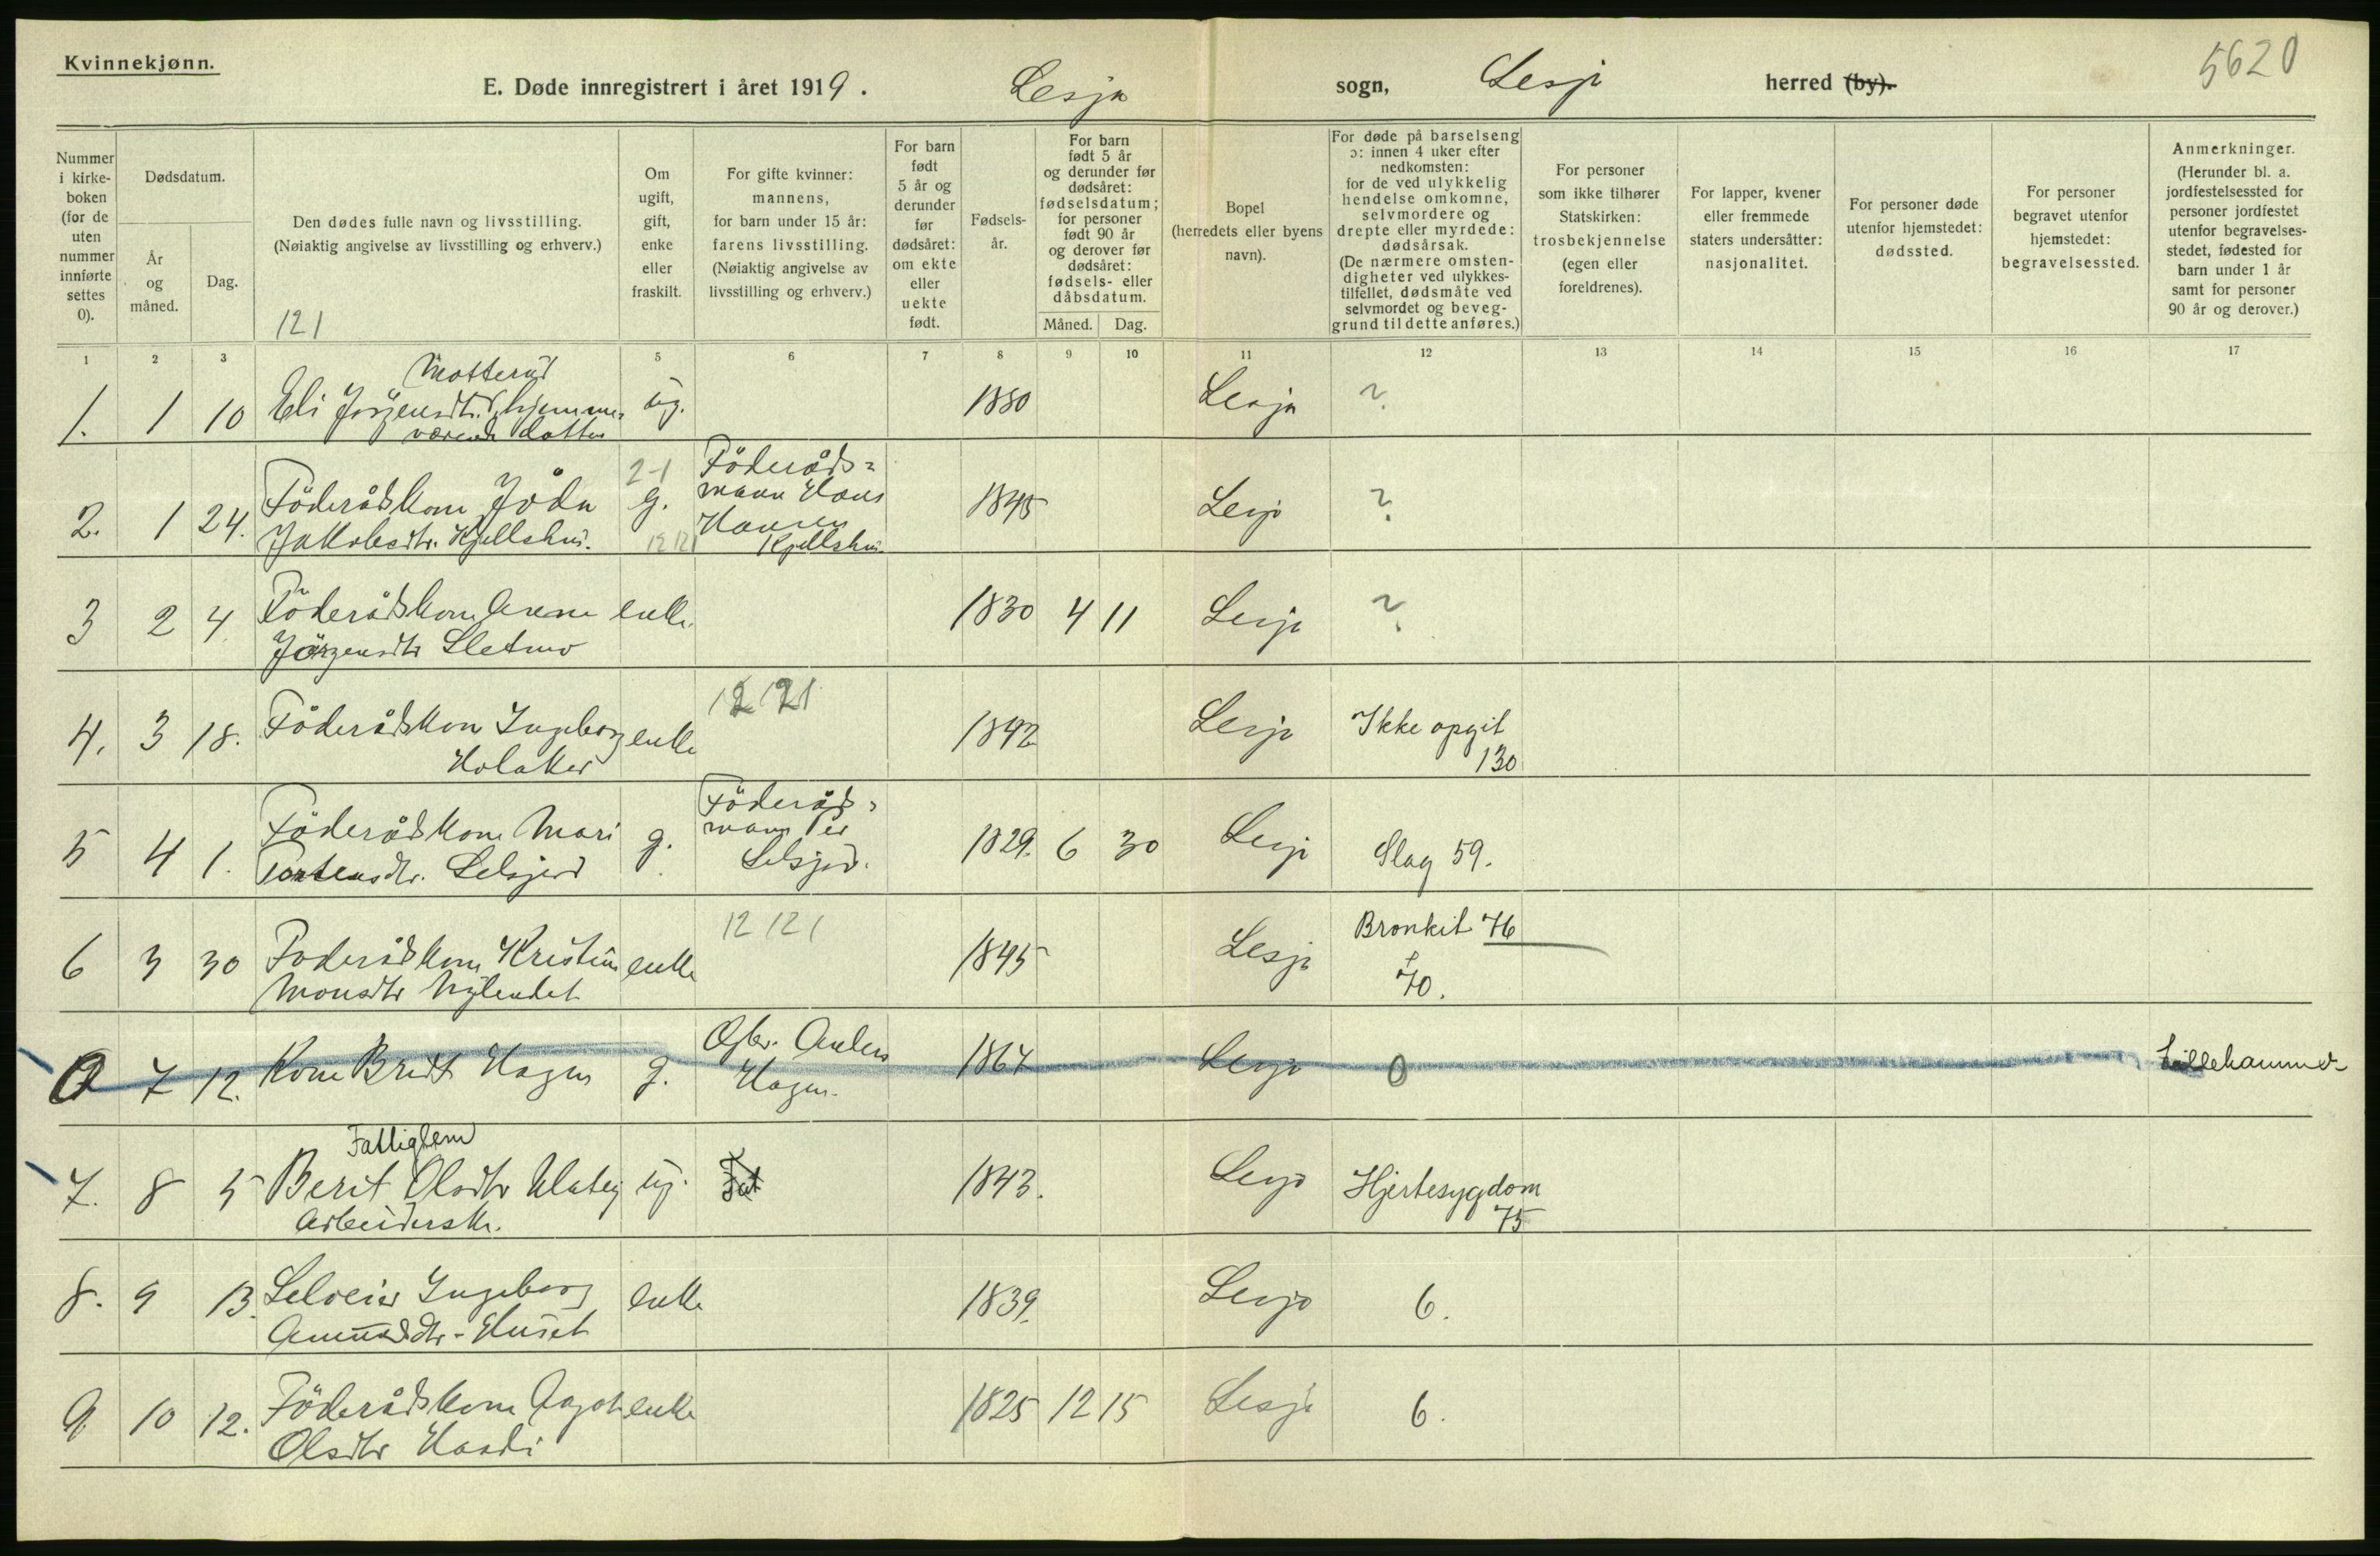 Kvinnekjønn.
5620
E. Døde innregistrert i året 1919. Lesja sogn, Lesja herred (by).
Nummer i kirkeboken (for de uten nummer innførte settes 0).
Dødsdatum.
År og måned.
Dag.
Den dødes fulle navn og livsstilling.
(Nøiaktig angivelse av livsstilling og erhverv.)
121
Om ugift, gift, enke eller fraskilt.
For gifte kvinner: mannens, for barn under 15 år: farens livsstilling. (Nøiaktig angivelse av livsstilling og erhverv.)
For barn født 5 år og derunder før dødsåret: om ekte eller uekte født.
Fødselsår.
For barn født 5 år og derunder før dødsåret: fødselsdatum; for personer født 90 år og derover før dødsåret: fødsels- eller dåbsdatum.
Måned. Dag.
Bopel (herredets eller byens navn).
For døde på barselseng ɔ: innen 4 uker efter nedkomsten: for de ved ulykkelig hendelse omkomne, selvmordere og drepte eller myrdede: dødsårsak. (De nærmere omstendigheter ved ulykkestilfellet, dødsmåte ved selvmordet og beveggrund til dette anføres.)
For personer som ikke tilhører Statskirken: trosbekjennelse (egen eller foreldrenes).
For lapper, kvener eller fremmede staters undersåtter: nasjonalitet.
For personer døde utenfor hjemstedet: dødssted.
For personer begravet utenfor hjemstedet: begravelsessted.
Anmerkninger. (Herunder bl. a. jordfestelsessted for personer jordfestet utenfor begravelsesstedet, fødested for barn under 1 år samt for personer 90 år og derover.)
1 2 3 5 6 7 8 9 10 11 12 13 14 15 16 17
Motterud
1. 1 10 Eli Jörgensdtr. hjemme- ug. 1880 Lesja ?
værende datter
2-1 Föderåds-
2. 1 24. Föderådskone Jöda g. mann Hans 1845 Lesja ?
Jakobsdtr. Kjellshus. 12 121 Hansen Kjellshus.
3 2 4. Föderådskone Anne enke. 1830 4 11 Lesja ?
Jörgensdtr Sletmo
12 121
4. 3 18. Föderådskone Ingeborg enke 1842 Lesja Ikke opgit
Holaker 130
Föderåds-
5 4 1. Föderådskone Mari g. mann 1829. 6 30 Lesja Slag 59.
Torstensdtr. Selsjord Selsjord.
12 121 Bronkit 76
6 3 30 Föderådskone Kristine enke 1845 Lesja
Monsdtr Nylendet 70.
Gbr. Anders
0 7 12. Kone Brit Hagen g. Hagen. 1867 Lesja 0 Lillehammer
Fattiglem
7. 8 5 Berit Olsdtr Ulateig ug. Fat 1843. Lesja Hjertesygdom
Arbeiderske. 75
8. 9 13. Selveier Ingeborg enke 1839. Lesja 6.
Amundsdtr. Huset
9. 10 12. Föderådskone Aagot enke 1825 12 15 Lesja 6.
Olsdtr